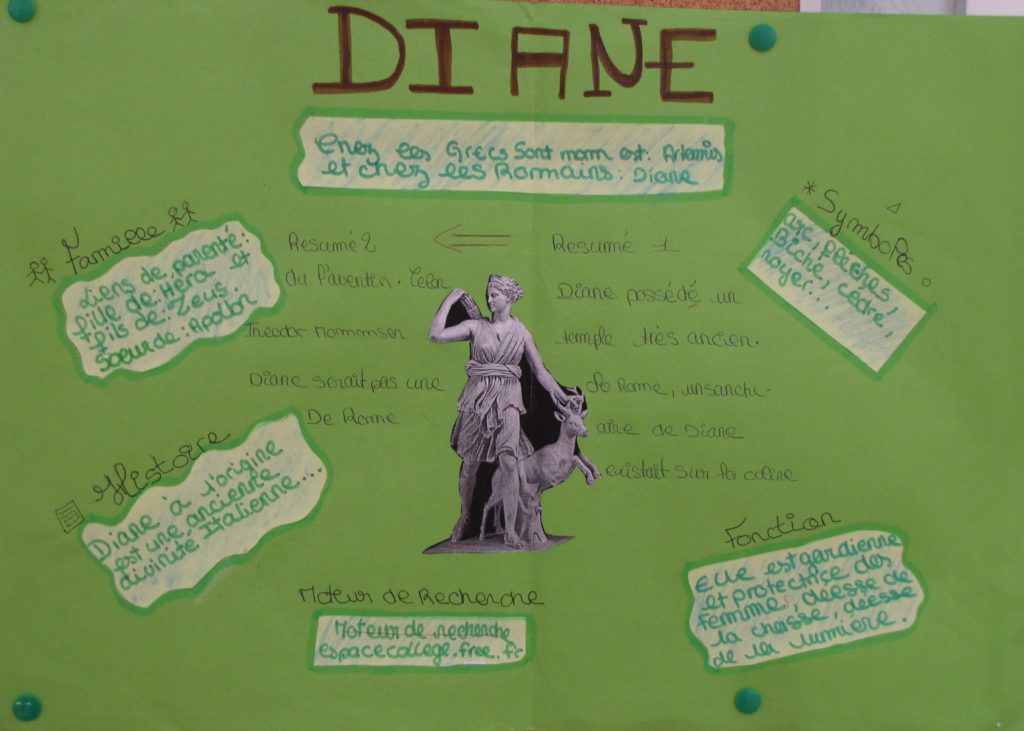 DIANE
Chez les Grecs Sont mom est: Artemis
et chez les Romains: Diane
Famille
Liens de parenté:
fille de: Héra et
fils de: Zeus
Soeur de: Apollon
* Symboles
arc, flèches,
Biche, cèdre,
noyer...
Resumé 2
du l'aventin.
Theodor Mommsen
Diane serait pas une
De Rome
Resumé 1
Diane possédé un
temple très ancien.
Rome, unsanctu-
aire de Diane
existait sur la coline
Histoire
Diane à l'origine
est une ancienne
divinité Italienne...
Fonction
Elle est gardienne
et protectrice des
femme, déesse de
la chasse, déesse
de la lumière.
Moteur de Recherche
Moteur de recherche
espacecollege.free.fr